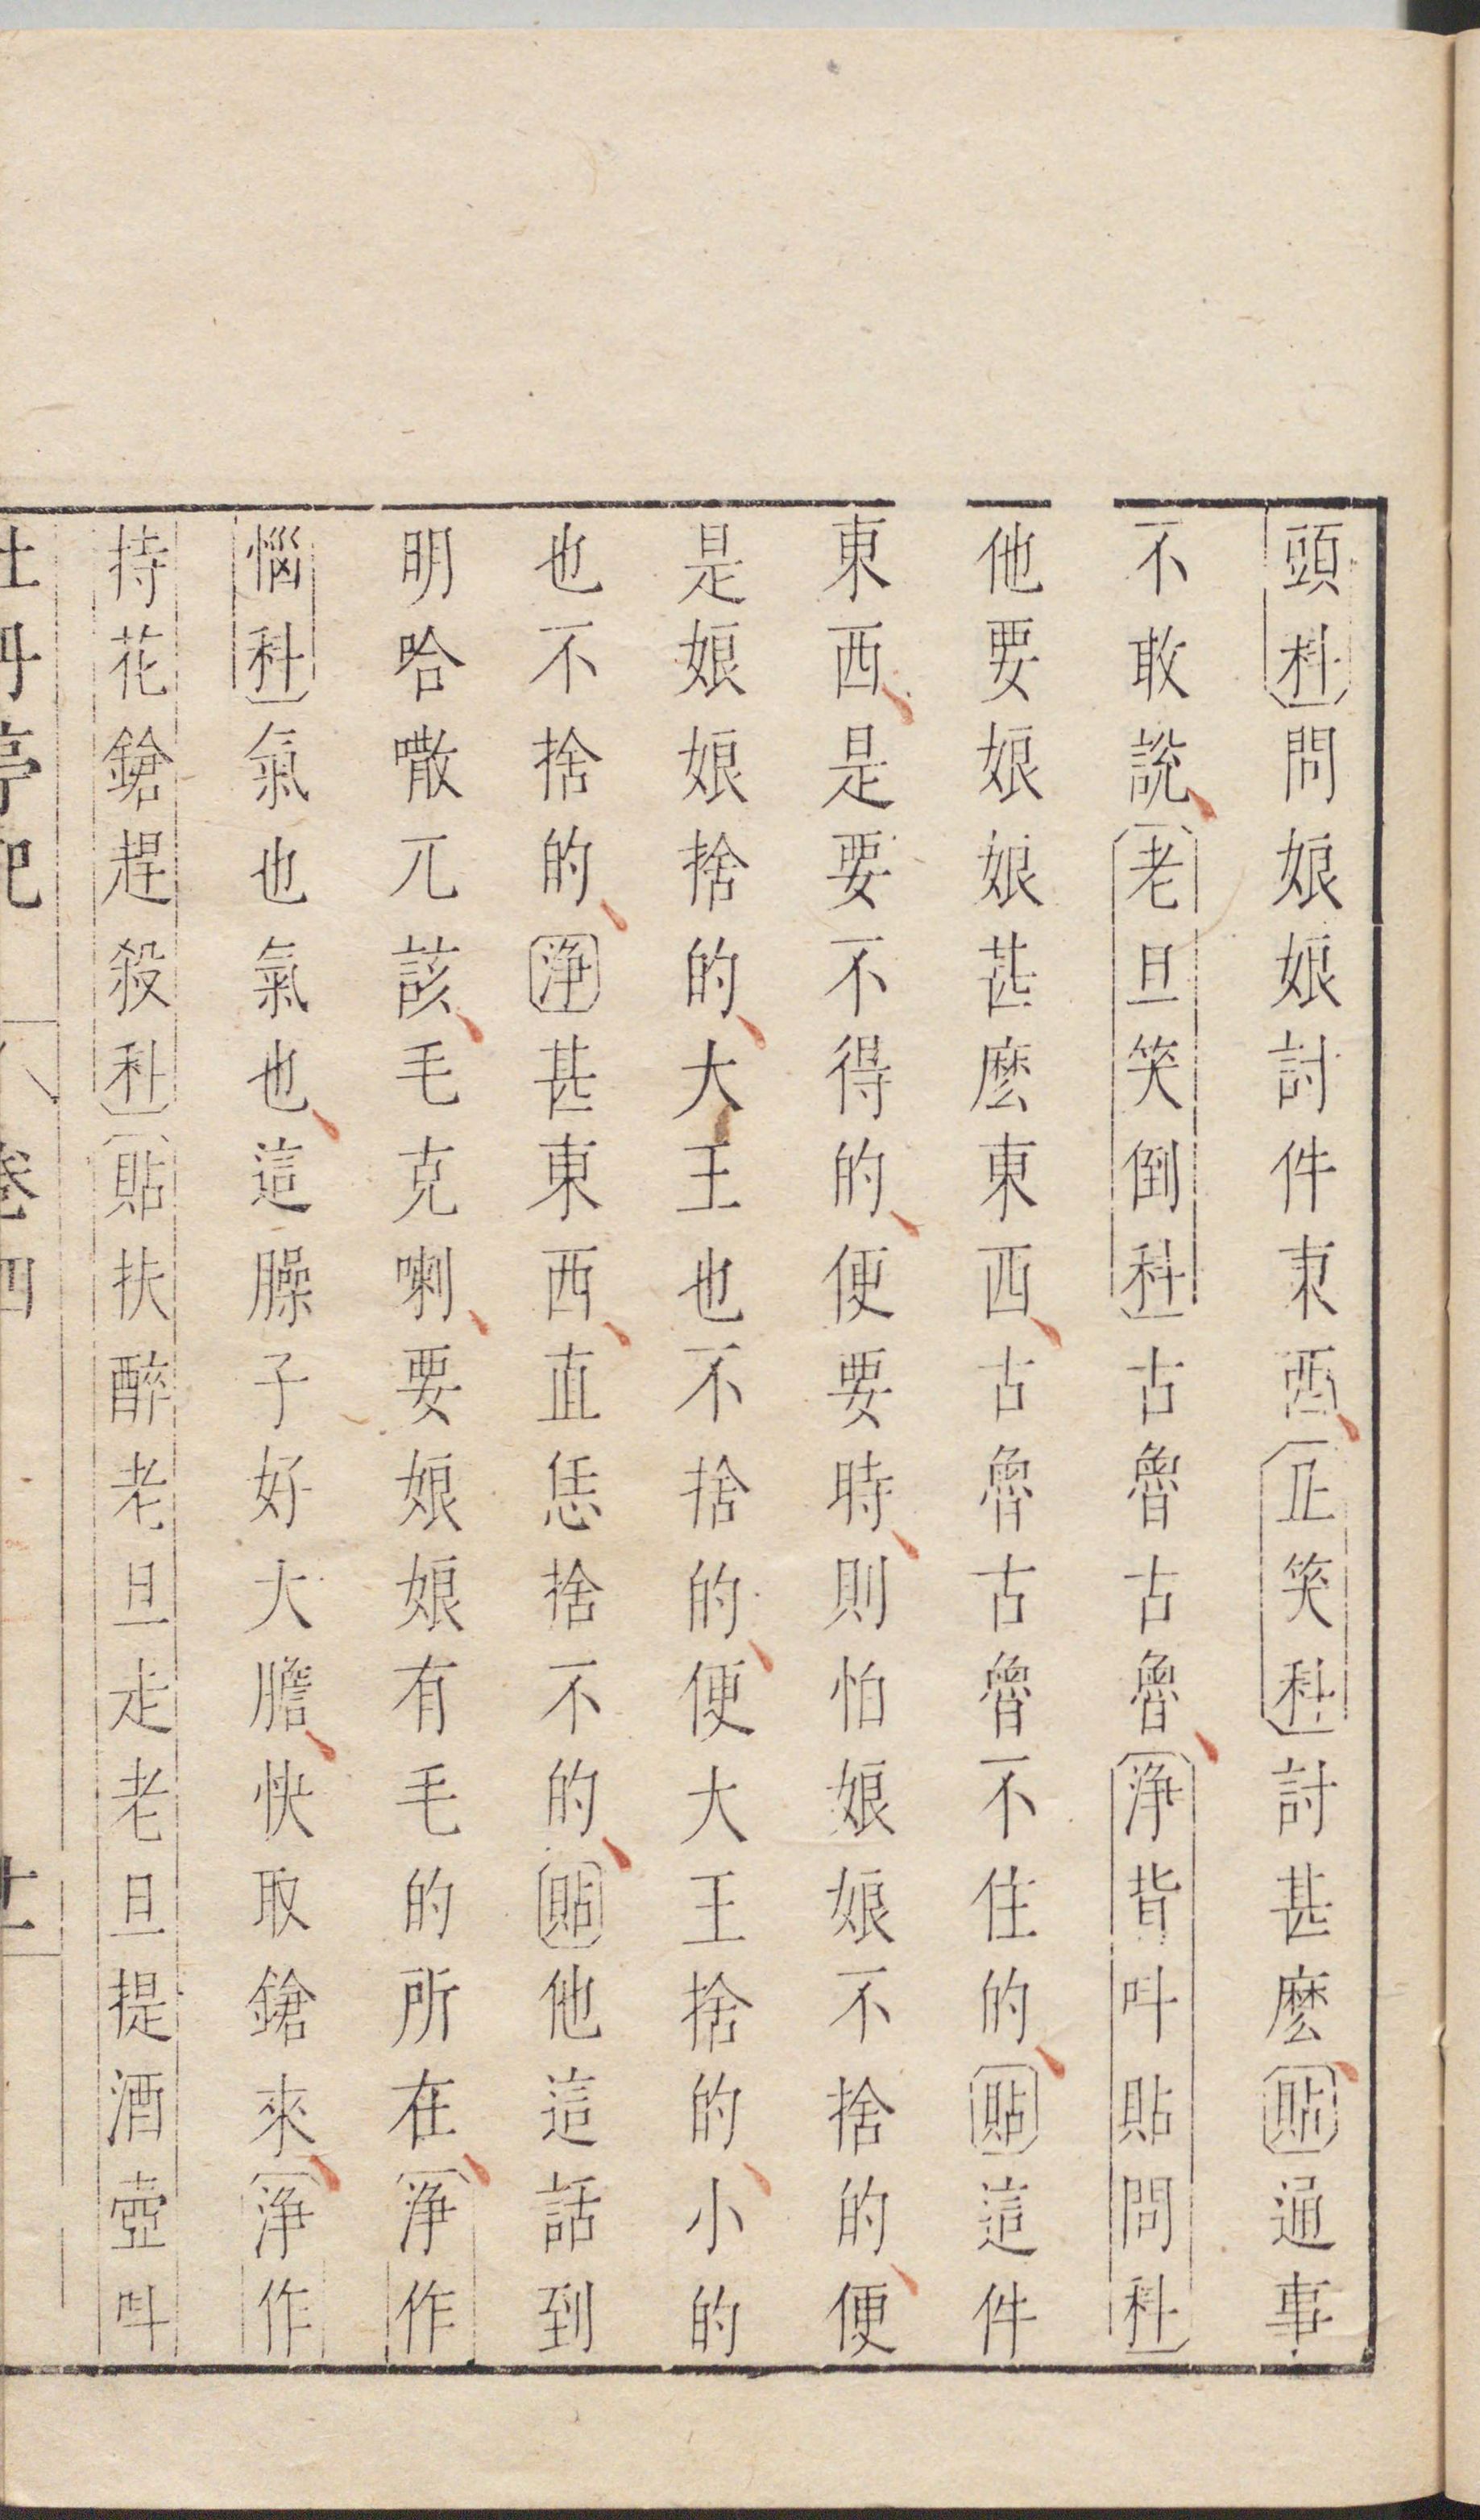 頭科問娘娘討件東西丑笑科討甚麽貼通事
不敢說老旦笑倒科古魯古魯淨背叫貼問科
他要娘娘甚麽東西古魯古魯不住的貼這件
東西是要不得的便要時則怕娘娘不捨的便
是娘娘捨的大王也不捨的便大王捨的小的
也不捨的淨甚東西直恁捨不的貼他這話到
明哈噉兀該毛克喇要娘娘有毛的所在淨作
惱科氣也氣也這臊子好大膽快取鎗來淨作
持花鎗趕殺科貼扶醉老旦走老旦提酒壺叫
牡丹亭記 卷四